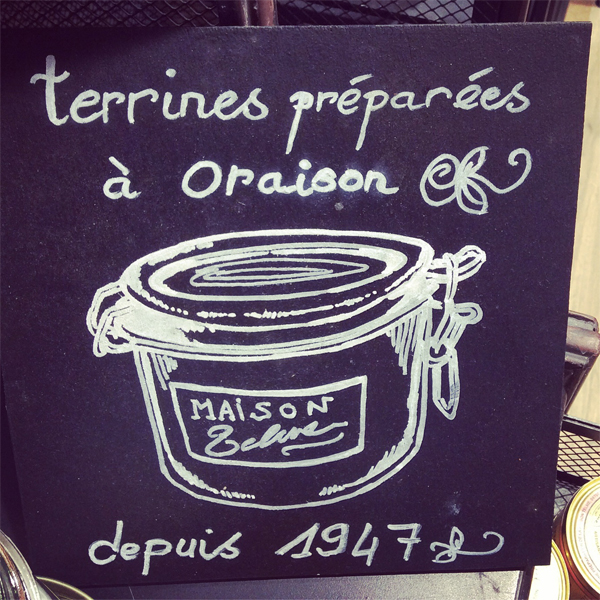 terrines préparées
à oraison
MAiSON
depuis 1947